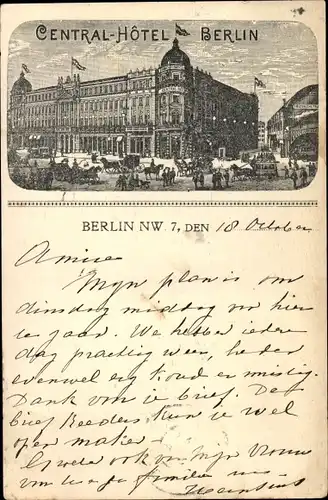 CENTRAL-HÔTEL BERLIN
BERLIN NW. 7, DEN 18 October
Amice
Mijn plan is om
dinsdag middag van hier
te gaan. We hebben iedere
dag prachtig weer, heden
evenwel erg koud en mistig.
Dank van je brief. De
brief Reeders kun je wel
open maken.
Groeten ook van mijn vrouw
van familie